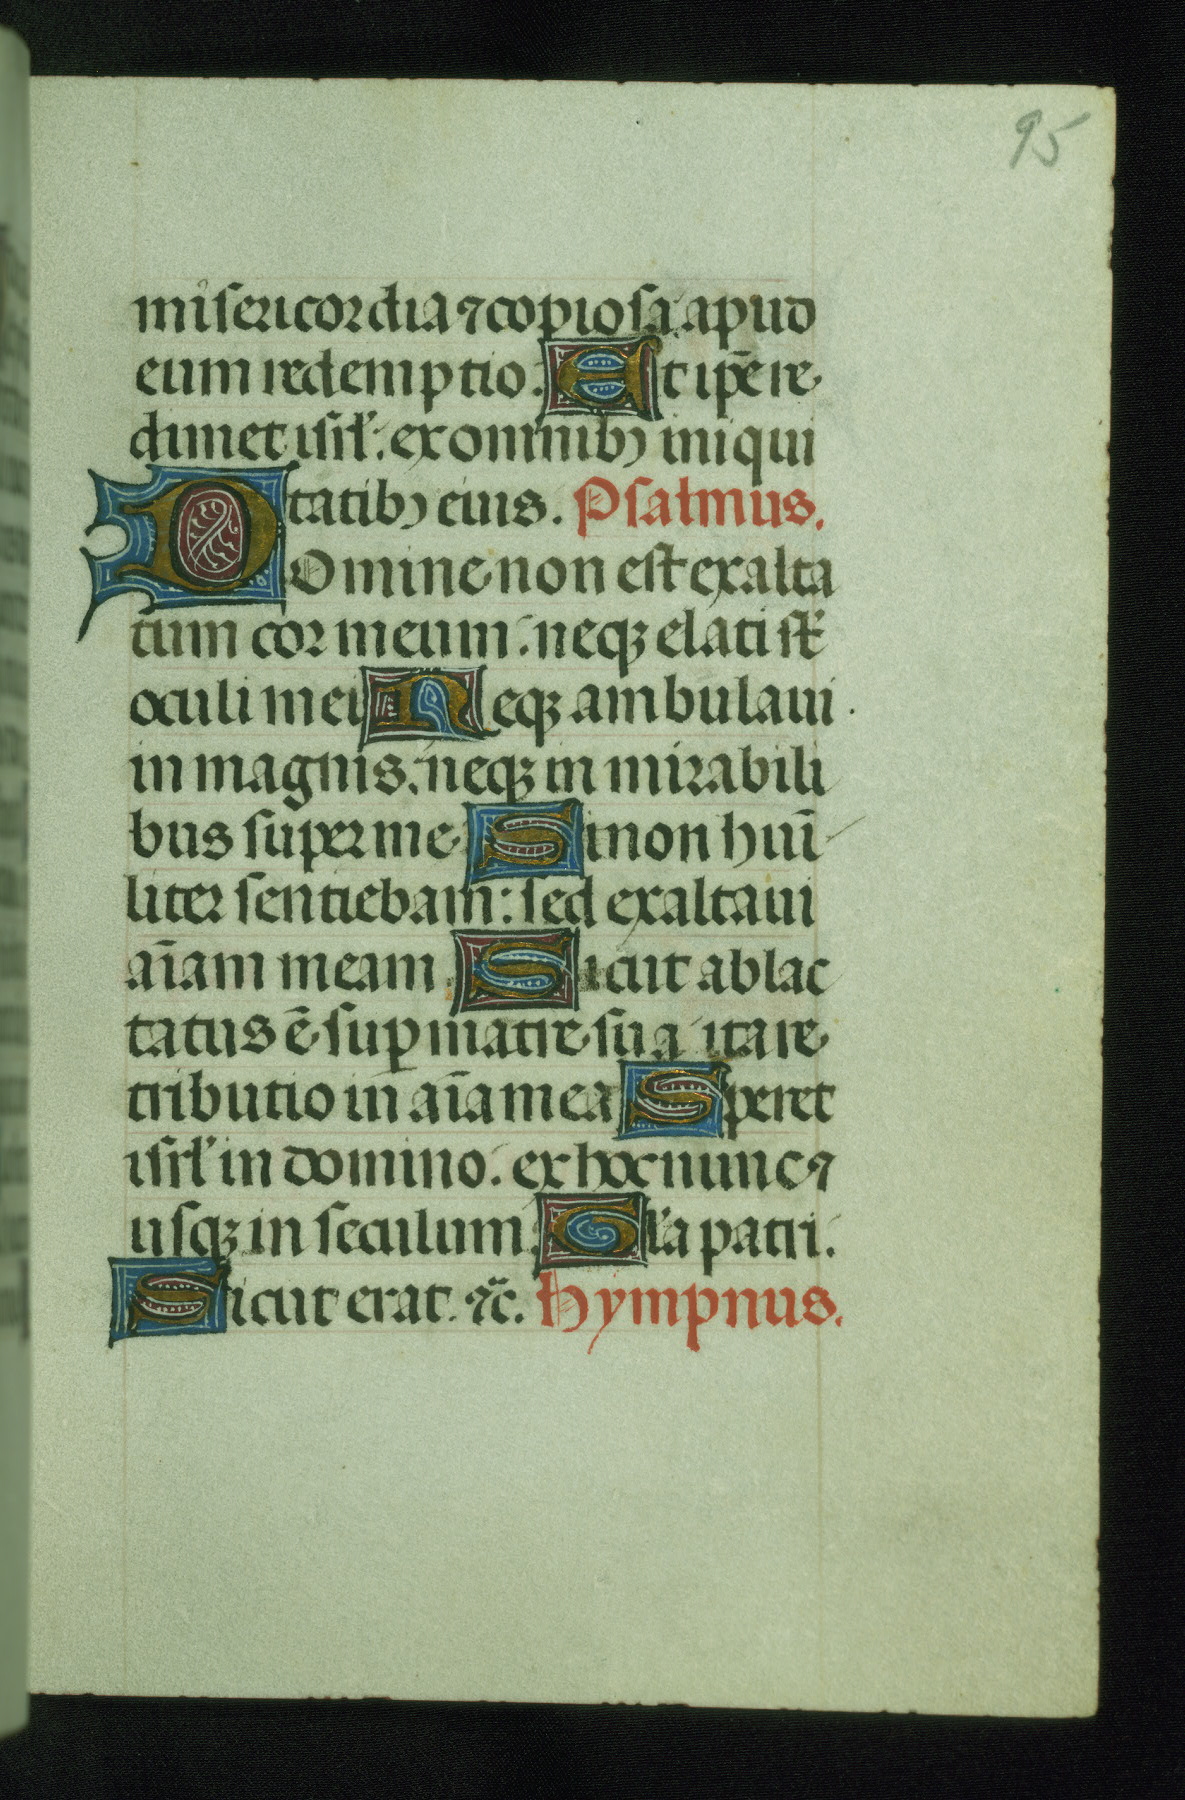 95
misericordia ⁊ copiosa apud
eum redemptio. Et ip̄e re
dimet isrł: ex omnibꝫ iniqui
tatibꝫ eius. Psalmus.
Domine non est exalta
tum cor meum: neqꝫ elati st̄
oculi mei Neqꝫ ambulaui
in magnis: neqꝫ in mirabili
bus super me Si non humī
liter sentiebam: sed exaltaui
aīam meam Sicut ablac
tatus ē sup matre sua ita re
tributio in aīa mea Speret
isrł in domino: ex hoc nunc ⁊
usqꝫ in seculum. Gl'a patri.
Sicut erat. ⁊c̄. Hympnus.